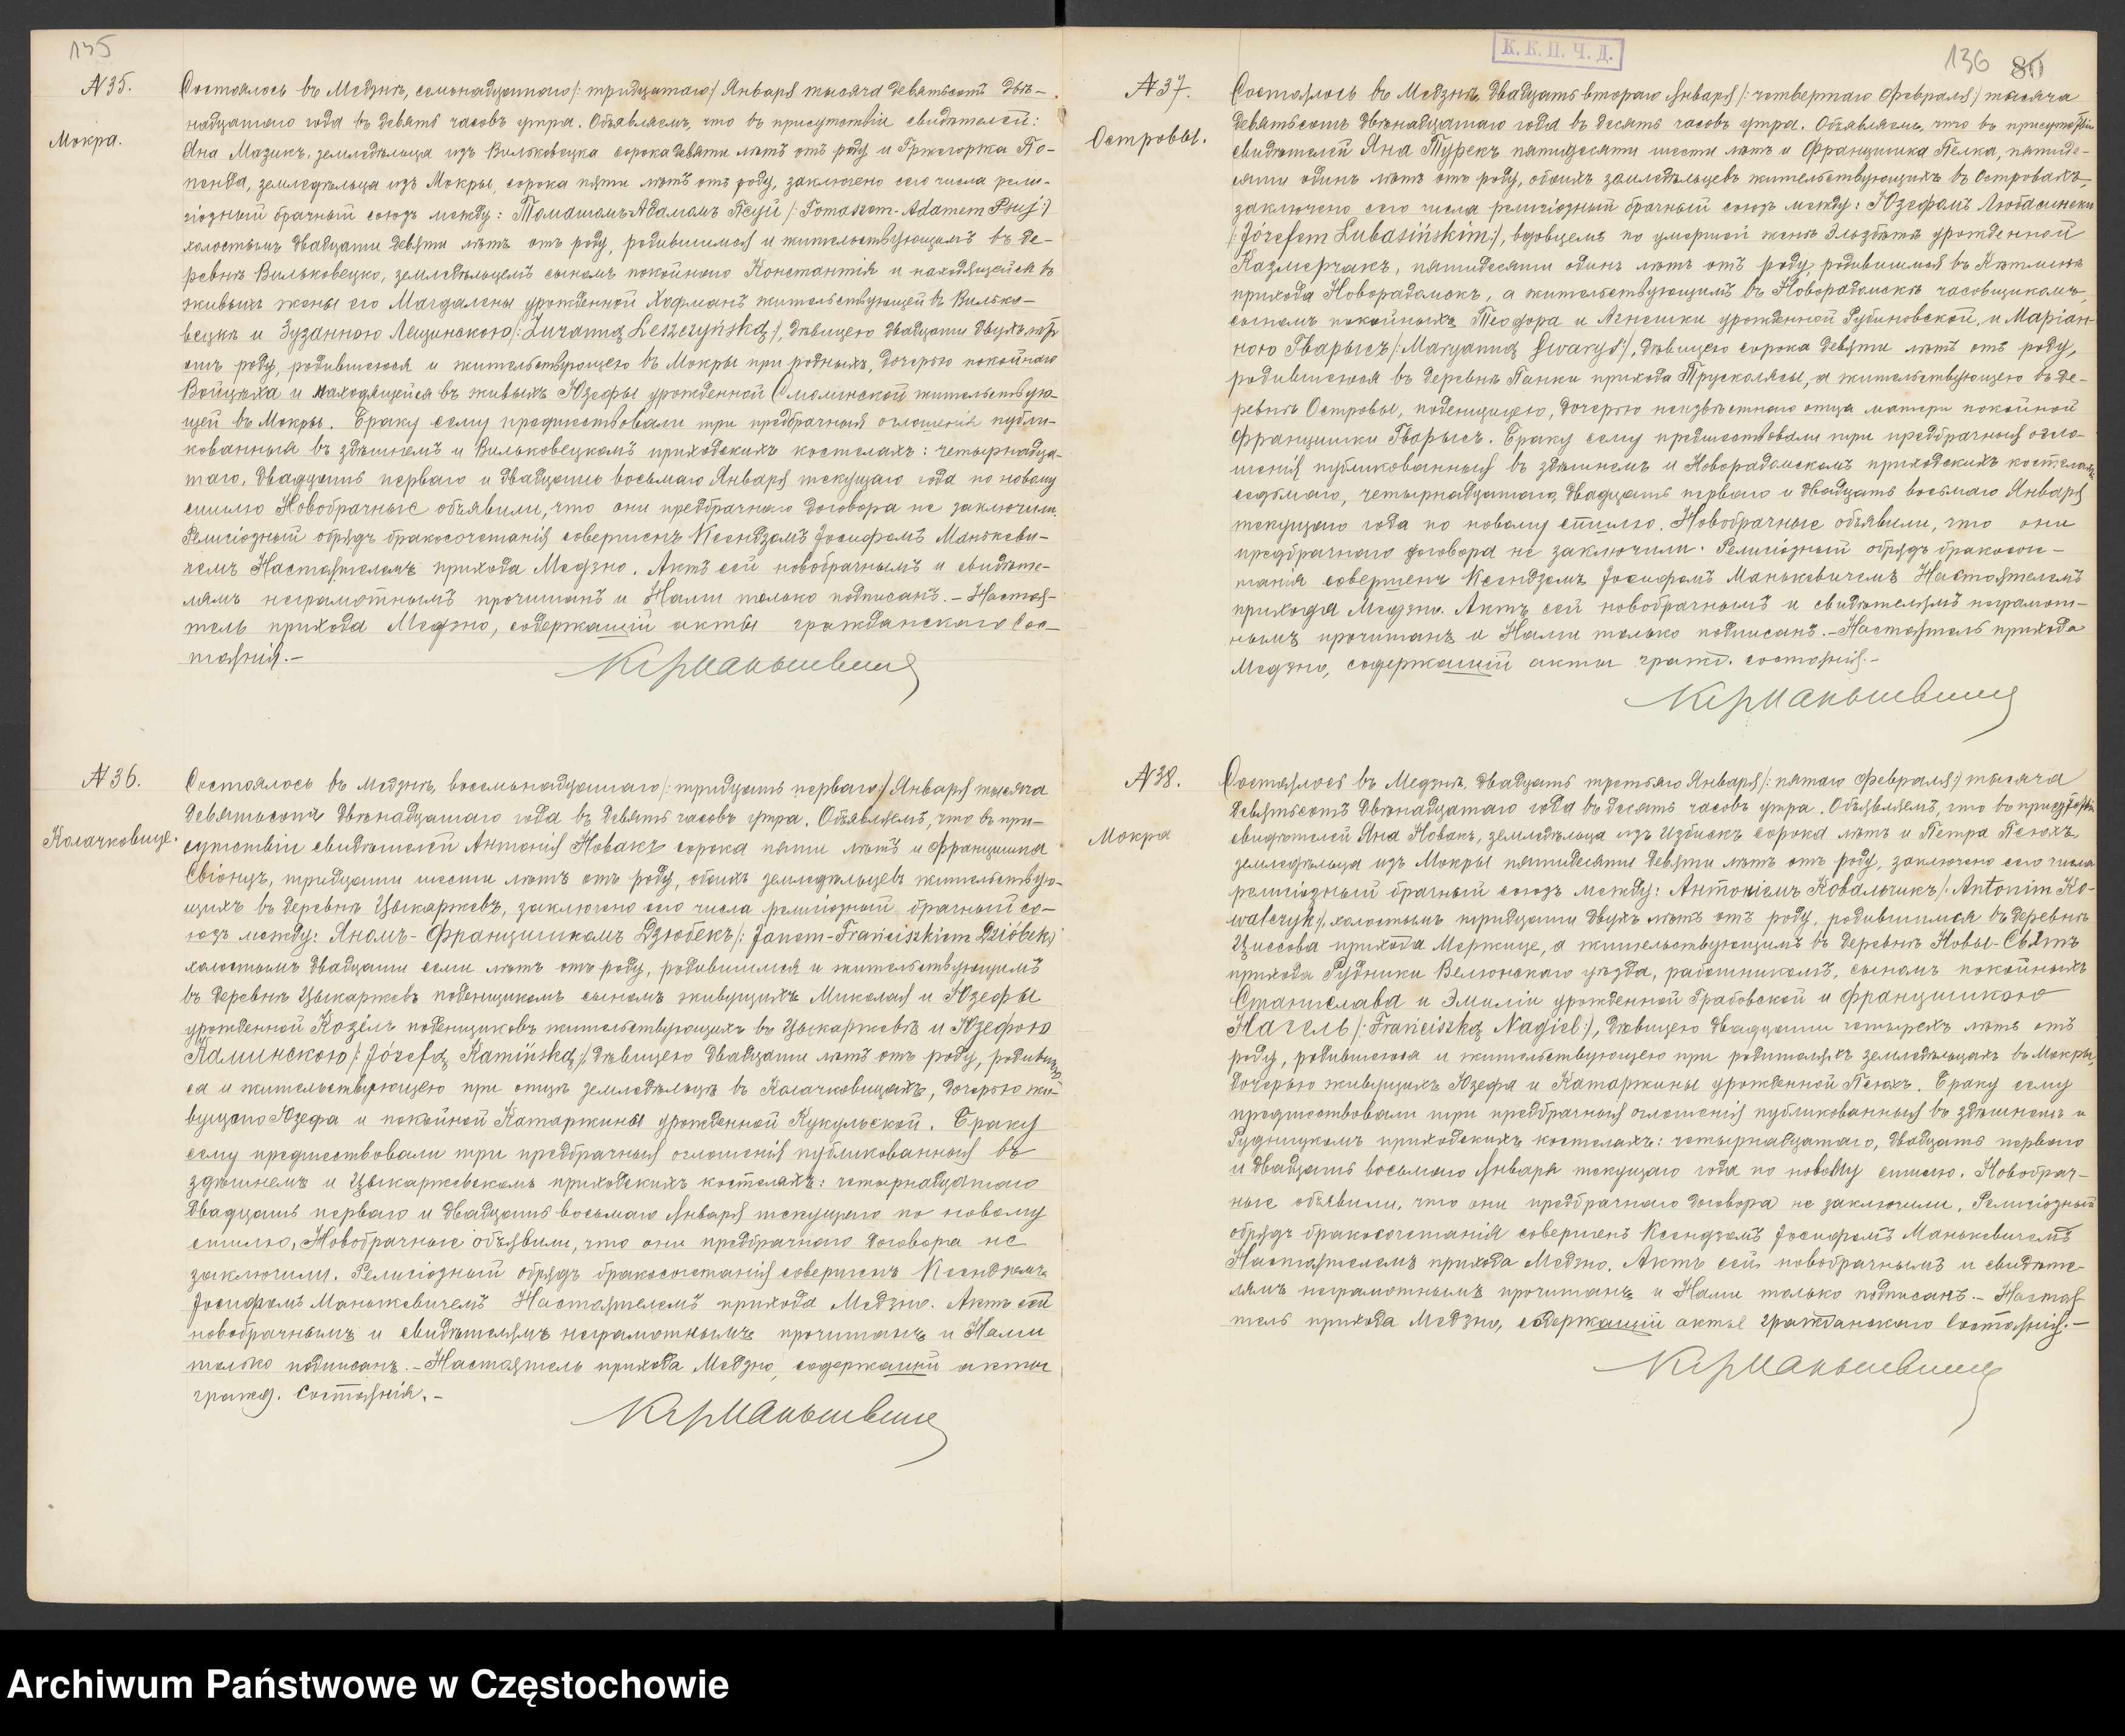 135
N 35.
Мокра.
Состоялось въ Медзнѣ, семьнадцатаго /: тридцатаго/ Января тысяча девятьсотъ двѣ-
надцатаго года въ девять часовъ утра. Объявляемъ, что въ присутствіи свидѣтелей:
Яна Мазикъ, земледѣльца изъ Вильковецка сорока девяти лѣтъ отъ роду и Гржегоржа По-
пенда, земледѣльца изъ Мокры, сорока пяти лѣтъ отъ роду, заключено сего числа рели-
гіозный брачный союзъ между: Томашомъ Адамомъ Псуй /: Tomaszem-Adamem Psuj:/
холостымъ двадцати девяти лѣтъ отъ роду, родившимся и жительствующимъ въ де-
ревнѣ Вильковецко, земледѣльцемъ сыномъ покойного Константія и находящейся въ
живыхъ жены его Магдалены урожденной Хофманъ жительствующей въ Вилько-
вецкѣ и Зузанною Лещинською /: Zuzanną Leszczyńską:/, дѣвицею двадцати двухъ лѣтъ
отъ роду, родившеюся и жительствующею въ Мокры при родныхъ, дочерью покойнаго
Войцѣха и находящейся въ живыхъ Юзефы урожденной Смолинской жительствую-
щей въ Мокры. Браку сему предшествовали три предбрачныя оглашенія публи-
кованныя въ здѣшнемъ и Вильковецкомъ приходскихъ костелахъ: четырнадца-
таго, двадцать перваго и двадцать восьмаго Января текущаго года по новому
стилю Новобрачные объявили, что они предбрачнаго договора не заключили.
Религіозный обрядъ бракосочетанія совершенъ Ксендзомъ Іосифомъ Манькеви-
чемъ Настоятелемъ прихода Медзно. Актъ сей новобрачнымъ и свидѣте-
лямъ неграмотнымъ прочитанъ и Нами только подписанъ. - Настоя-
тель прихода Медзно, содержащій акты гражданскаго Сос-
тоянія. -
N 36.
Колачковице.
Состоялось въ Медзнѣ, восемьнадцатаго /: тридцать перваго:/ Января тысяча
девятьсотъ двѣнадцатаго года въ девять часовъ утра. Объявляемъ, что въ при-
сутствіи свидѣтелей Антонія Новакъ сорока пяти лѣтъ и Францишка
Свіонцъ, тридцати шести лѣтъ отъ роду, обоихъ земледѣльцевъ жительствую-
щихъ въ деревнѣ Цыкаржевъ, заключено сего числа религіозный брачный со-
юзъ между: Яномъ-Францишкомъ Дзюбекъ /: Janem-Franciszkiem Dziobek:/
холостымъ двадцати семи лѣтъ отъ роду, родившимся и жительствующимъ
въ деревнѣ Цыкаржевъ поденщикомъ сыномъ живущихъ Миколая и Юзефы
урожденной Козёлъ поденщиковъ жительствующихъ въ Цыкаржевѣ и Юзефою
Каминскою /: Józefą Kamińską:/, дѣвицею двадцати лѣтъ отъ роду, родившею-
ся и жительствующею при отцѣ земледѣльцѣ въ Колачковицахъ, дочерью жи-
вущаго Юзефа и покойной Катаржины урожденной Кукульской. Браку
сему предшествовали три предбрачныя оглашенія публикованныя въ
здѣшнемъ и Цыкаржевскомъ приходскихъ костелахъ: четырнадцатаго
двадцать перваго и двадцать восьмаго Января текущаго по новому
стилю, Новобрачные объявили, что они предбрачнаго договора не
заключили. Религіозный обрядъ бракосочетанія совершенъ Ксендзомъ
Іосифомъ Манькевичемъ Настоятелемъ прихода Медзно. Актъ сей
новобрачнымъ и свидѣтелямъ неграмотнымъ прочитанъ и Нами
только подписанъ. - Настоятель прихода Медзно, содержащій акты
гражд. Состоянія. -
К. К. П. Ч. Д.
136 80
N 37.
Островы.
Состоялось въ Медзнѣ, двадцать втораго Января /: четвертаго Февраля:/ тысяча
девятьсотъ двѣнадцатаго года въ десять часовъ утра. Объявляемъ, что въ присутствіи
свидѣтелей Яна Турекъ пятидесяти шести лѣтъ и Францишка Пелка, пятиде-
сяти одинъ лѣтъ отъ роду, обоихъ земледѣльцевъ жительствующихъ въ Островахъ,
заключено сего числа религіозный брачный союзъ между: Юзефомъ Любасински
/: Józefem Lubasińskim:/, вдовцемъ по умершей женѣ Эльзбѣтѣ урожденной
Казмерчакъ, пятидесяти одинъ лѣтъ отъ роду, родившимся въ Кѣтлинѣ
прихода Новорадомскъ, а жительствующимъ въ Новорадомскѣ часовщикомъ,
сыномъ покойныхъ Теодора и Агнешки урожденной Рубиновской, и Маріан-
ною Гварысъ /: Maryanną Gwarys:/, дѣвицею сорока девяти лѣтъ отъ роду,
родившеюся въ деревнѣ Панки прихода Трусколясы, а жительствующею въ де-
ревнѣ Островы, поденщицею, дочерью неизвѣстнаго отца матери покойной
Францишки Гварысъ. Браку сему предшествовали три предбрачныя огло-
шенія публикованныя въ здѣшнемъ и Новорадомскомъ приходскихъ костелахъ
седьмаго, четырнадцатаго, двадцать перваго и двадцать восьмаго Января
текущаго года по новому стилю. Новобрачные объявили, что они
предбрачнаго договора не заключили. Религіозный обрядъ бракосоче-
танія совершенъ Ксендзомъ Іосифомъ Манькевичемъ Настоятелемъ
прихода Медзно. Актъ сей новобрачнымъ и свидѣтелямъ неграмот-
нымъ прочитанъ и Нами только подписанъ. - Настоятель прихода
Медзно, содержащій акты гражд. состоянія. -
N 38.
Мокра
Состоялось въ Медзнѣ, двадцать третьяго Января /: пятаго Февраля:/ тысяча
девятьсотъ двѣнадцатаго года въ десять часовъ утра. Объявляемъ, что въ присутствіи
свидѣтелей Яна Новакъ, земледѣльца изъ Избискъ сорока лѣтъ и Петра Псюхъ,
земледѣльца изъ Мокры пятидесяти девяти лѣтъ отъ роду, заключено сего числа
религіозный брачный союзъ между: Антоніемъ Ковальчикъ /: Antonim Ko-
walczyk:/, холостымъ тридцати двухъ лѣтъ отъ роду, родившимся въ деревнѣ
Циссова прихода Мержице, а жительствующимъ въ деревнѣ Новы-Свѣтъ
прихода Рудники Велюнскаго уѣзда, работникомъ, сыномъ покойныхъ
Станислава и Эмиліи урожденной Грабовской и Францишкою
Нагель /: Franciszką Nagiel:/, дѣвицею двадцати четырехъ лѣтъ отъ
роду, родившеюся и жительствующею при родителяхъ земледѣльцахъ въ Мокры,
дочерью живущихъ Юзефа и Катаржины урожденной Псюхъ. Браку сему
предшествовали три предбрачныя оглашенія публикованныя въ здѣшнемъ и
Рудницкомъ приходскихъ костелахъ: четырнадцатаго, двадцать перваго
и двадцать восьмаго Января текущаго года по новому стилю. Новобрач-
ные объявили, что они предбрачнаго договора не заключили. Религіозный
обрядъ бракосочетанія совершенъ Ксендзомъ Іосифомъ Манькевичемъ
Настоятелемъ прихода Медзно. Актъ сей новобрачнымъ и свидѣте-
лямъ неграмотнымъ прочитанъ и Нами только подписанъ. - Настоя-
тель прихода Медзно, содержащій акты гражданскаго Состоянія. -
Archiwum Państwowe w Częstochowie